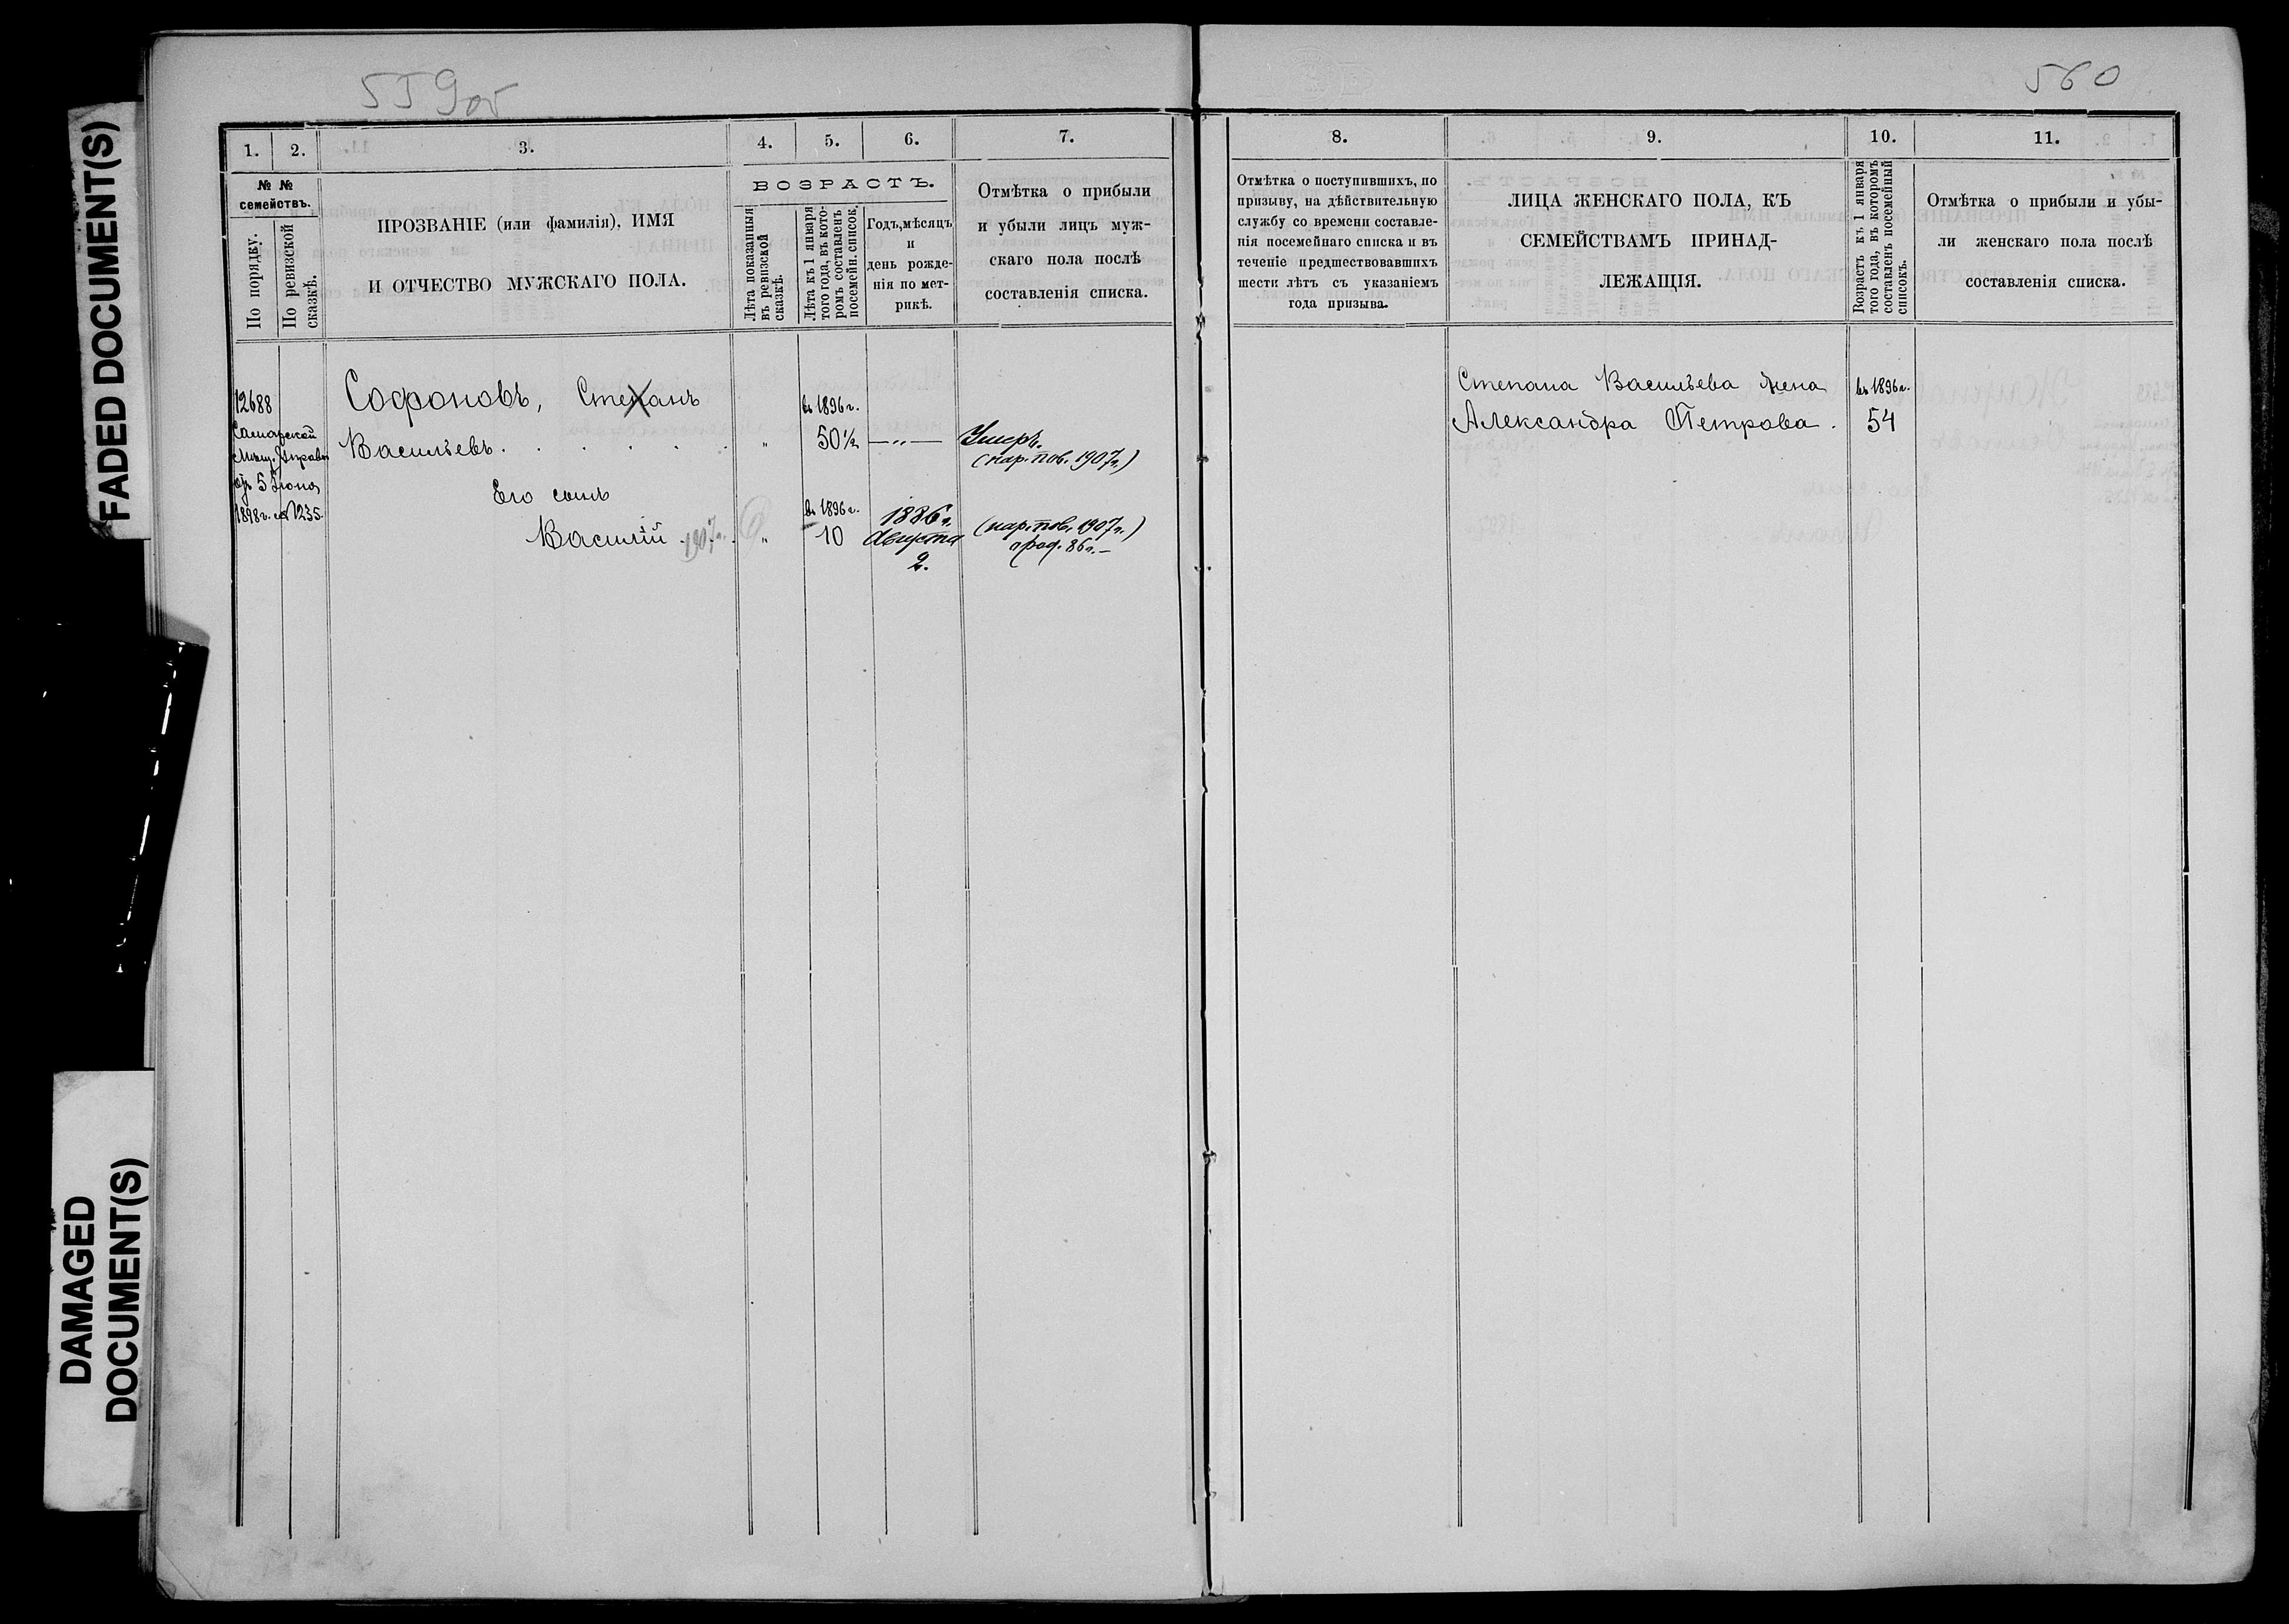 FADED DOCUMENT(S)
DAMAGED
DOCUMENT(S)
559об
1.
2.
3.
4.
5.
6.
7.
№ №
семействъ.
По порядку.
По ревизской
сказкѣ.
ПРОЗВАНІЕ (или фамилія), ИМЯ
И ОТЧЕСТВО МУЖСКАГО ПОЛА.
ВОЗРАСТЪ.
Лѣта показанныя
въ ревизской
сказкѣ.
Лѣта къ 1 января
того года, въ кото-
ромъ составленъ
посемейн. список.
Годъ, мѣсяцъ
и
день рожде-
нія по мет-
рикѣ.
Отмѣтка о прибыли
и убыли лицъ муж-
скаго пола послѣ
составленія списка.
12688
Самарской
Мѣщ. Управы
5 Іюня
1898 г. № 1235.
Софоновъ, Степанъ
Васильевъ . . . . .
"
въ 1896 г.
50½
— " —
Умеръ.
(нар. пов. 1907 г.)
Его сынъ
Василій . 1907 г.
"
въ 1896 г.
10
1886 г.
Августа
2.
(нар. пов. 1907 г.)
род. 86 г. —
560
8.
9.
10.
11.
Отмѣтка о поступившихъ, по
призыву, на дѣйствительную
службу со времени составле-
нія посемейнаго списка и въ
теченіе предшествовавшихъ
шести лѣтъ съ указаніемъ
года призыва.
ЛИЦА ЖЕНСКАГО ПОЛА, КЪ
СЕМЕЙСТВАМЪ ПРИНАД-
ЛЕЖАЩІЯ.
Возрастъ къ 1 января
того года, въ которомъ
составленъ посемейный
списокъ.
Отмѣтка о прибыли и убы-
ли женскаго пола послѣ
составленія списка.
Степана Васильева жена
Александра Петрова .
въ 1896 г.
54